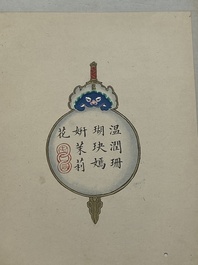 温潤珊
瑚玦嫣
妍茉莉
花